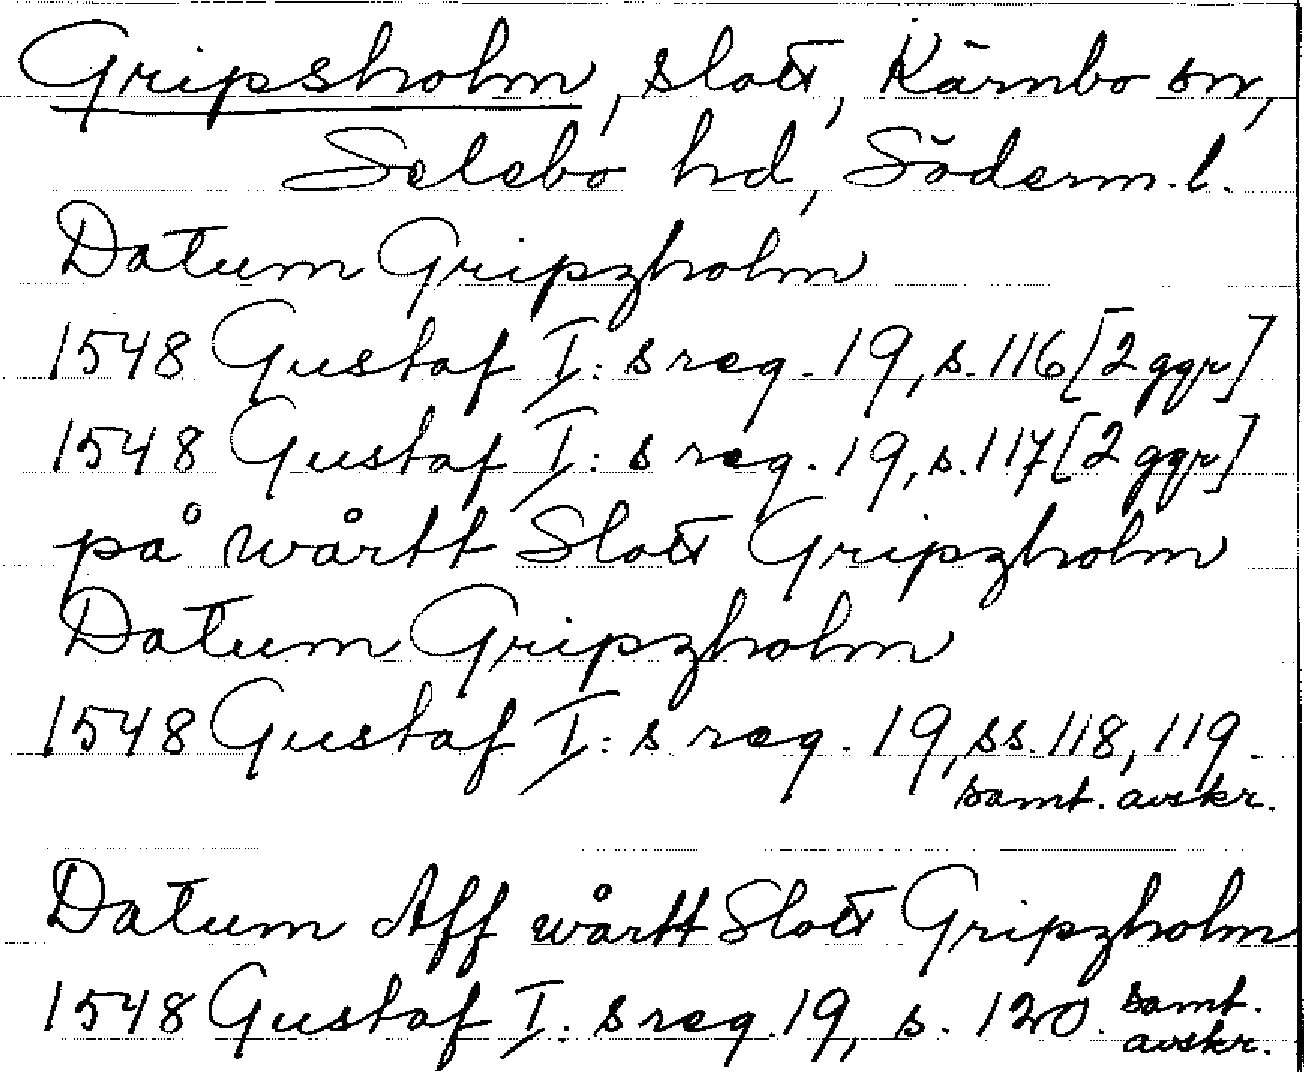 Gripsholm, slott, Kärnbo sn,
Selebo hd, Söderm. l.
Datum Gripzholm
1548 Gustaf I:s reg. 19, s. 116 [2 ggr]
1548 Gustaf I:s reg. 19, s. 117 [2 ggr]
på wårtt Slott Gripzholm
Datum Gripzholm
1548 Gustaf I:s reg. 19, ss. 118, 119.
samt. avskr.
Datum Aff wårtt Slott Gripzholm
1548 Gustaf I:s reg. 19, s. 120. samt.
avskr.